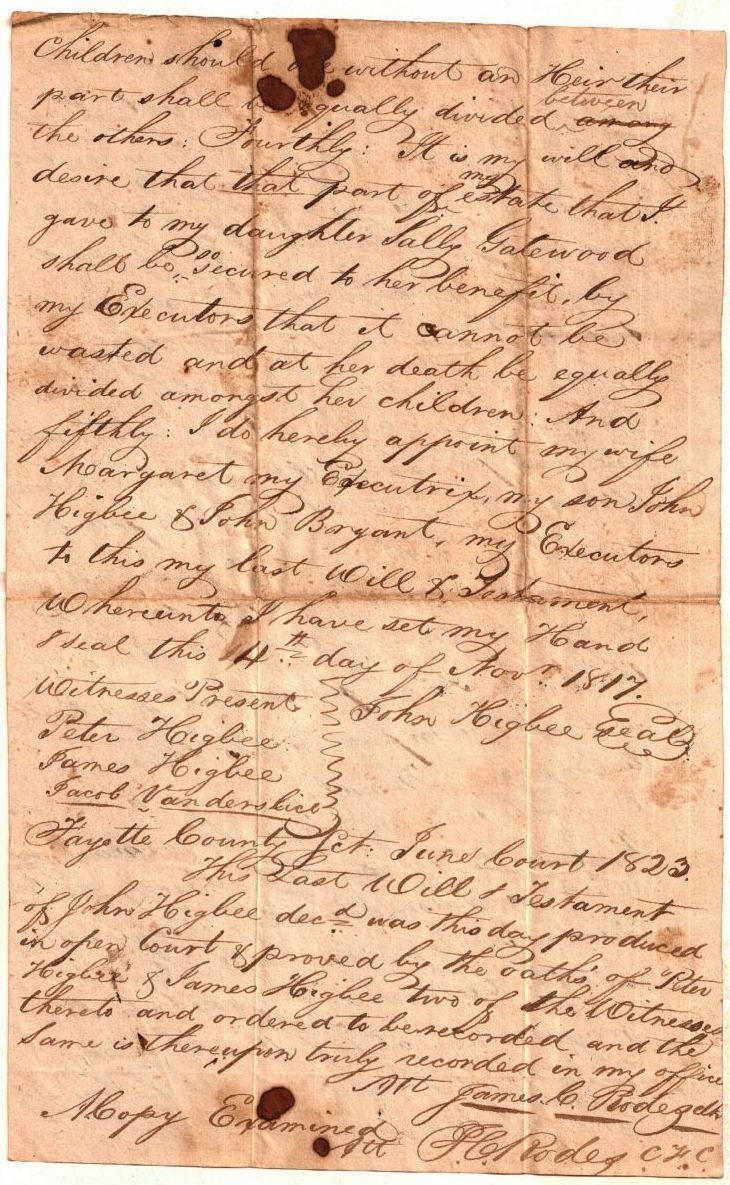 Children should die without an Heir their
part shall be equally divided between among
the others: Fourthly: It is my will and
desire that that part of my estate that I
gave to my daughter Sally Gatewood
shall be so secured to her benefit, by
my Executors that it cannot be
wasted and at her death be equally
divided amongst her children: And
fifthly: I do hereby appoint my wife
Margaret my Executrix, my son John
Higbee & John Bryant, my Executors
to this my last Will & Testament,
Whereunto I have set my Hand
& seal this 4th day of Novr 1817.
Witnesses Present
John Higbee Seal
Peter Higbee
James Higbee
Jacob Vanderslice
Fayette County Sct: June Court 1823.
This Last Will & Testament
of John Higbee decd was this day produced
in open Court & proved by the oaths of Peter
Higbee & James Higbee two of the Witnesses
thereto and ordered to be recorded and the
same is thereupon truly recorded in my office
Att James C. Rodes clk
A Copy Examined
Att J C Rodes C F C